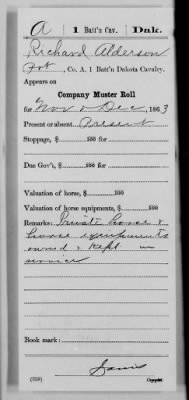 A | 1 Batt'n Cav. | Dak.
Richard Alderson
Pvt, Co. A, 1 Batt'n Dakota Cavalry.
Appears on
Company Muster Roll
for Nov & Dec, 1863
Present or absent, Present
Stoppage, $ 100
Due Gov't, $ 100
Valuation of horse, $ 100
Valuation of horse equipments, $ 100
Remarks: Private horse &
horse equipments
owned & kept in
service
Book mark:
(359) Copyist.